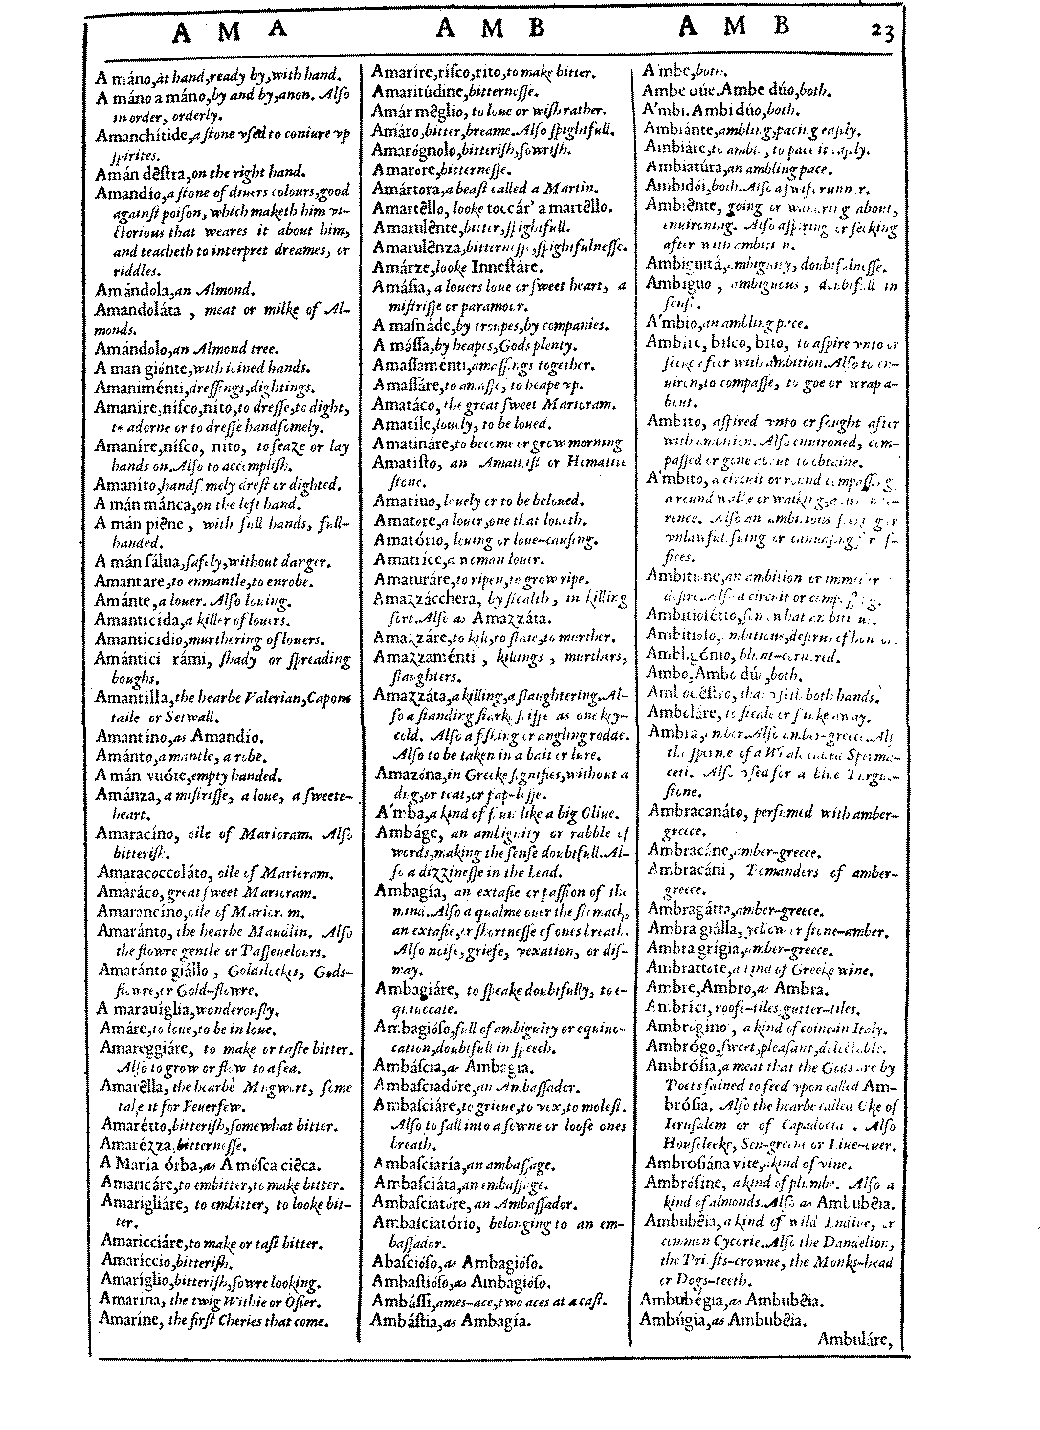 A M A
A M B
A M B
23
A máno, at hand, ready by, with hand.
A máno a máno, by and by, anon. Also
in order, orderly.
Amanchítide, a stone vsed to coniure vp
spirites.
Amán dêstra, on the right hand.
Amandío, a stone of diuers colours, good
against poison, which maketh him vi-
ctorious that weares it about him,
and teacheth to interpret dreames, or
riddles.
Amándola, an Almond.
Amandoláta, meat or milke of Al-
monds.
Amándolo, an Almond tree.
A man giónte, with ioined hands.
Amaniménti, dressings, dightings.
Amaníre, nísco, níto, to dresse, to dight,
to adorne or to dresse handsomely.
Amaníre, nísco, níto, to seaze or lay
hands on. Also to accomplish.
Amaníto, handsomely drest or dighted.
A mán mánca, on the left hand.
A mán piêne, with full hands, full-
handed.
A mán sálua, safely, without danger.
Amantare, to enmantle, to enrobe.
Amánte, a louer. Also louing.
Amanticída, a killer of louers.
Amanticídio, murthering of louers.
Amántici rámi, shady or spreading
boughs.
Amantílla, the hearbe Valerian, Capons
taile or Setwall.
Amantíno, as Amandío.
Amánto, a mantle, a robe.
A mán vuóte, empty handed.
Amánza, a mistrisse, a loue, a sweete-
heart.
Amaracíno, oile of Marioram. Also
bitterish.
Amaracoccoláto, oile of Marioram.
Amaráco, great sweet Marioram.
Amarancíno, oile of Marioram.
Amaránto, the hearbe Maudlin. Also
the flowre gentle or Passeuelours.
Amaránto giállo, Goldilockes, Gods-
flowre, or Gold-flowre.
A marauíglia, wonderously.
Amáre, to loue, to be in loue.
Amareggiáre, to make or taste bitter.
Also to grow or flow to a sea.
Amarêlla, the hearbe Mugwort, some
take it for Feuerfew.
Amarétto, bitterish, somewhat bitter.
Amarézza, bitternesse.
A María órba, as A mósca ciêca.
Amaricáre, to embitter, to make bitter.
Amarigliáre, to embitter, to looke bit-
ter.
Amaricciáre, to make or tast bitter.
Amaríccio, bitterish.
Amaríglio, bitterish, sowre looking.
Amarína, the twig Withie or Osier.
Amaríne, the first Cheries that come.
Amaríre, rísco, ríto, to make bitter.
Amaritúdine, bitternesse.
Amár mêglio, to loue or wish rather.
Amáro, bitter, breame. Also spightfull.
Amarógnolo, bitterish, sowrish.
Amarore, bitternesse.
Amártora, a beast called a Martin.
Amartêllo, looke toccár' a martêllo.
Amarulênte, bitter, spightfull.
Amarulênza, bitternesse, spightfulnesse.
Amárze, looke Innestáre.
Amásia, a louers loue or sweet heart, a
mistrisse or paramour.
A masnáde, by troupes, by companies.
A mássa, by heapes, Gods plenty.
Amassaménti, amassings together.
Amassáre, to amasse, to heape vp.
Amatáco, the great sweet Marioram.
Amatíle, louely, to be loued.
Amatináre, to become or grow morning
Amatísto, an Amatist or Hematite
stone.
Amatíuo, louely or to be beloued.
Amatore, a louer, one that loueth.
Amatório, louing or loue-causing.
Amatríce, a woman louer.
Amaturáre, to ripen, to grow ripe.
Amazzácchera, by stealth, in killing
sort. Also as Amazzáta.
Amazzáre, to kill, to slaie, to murther.
Amazzaménti, killings, murthers,
slaughters.
Amazzáta, a killing, a slaughtering. Al-
so a standing starke stiffe as one key-
cold. Also a fishing or angling rodde.
Also to be taken in a bait or lure.
Amazóna, in Greeke signifies, without a
dug, or teat, or pap-lesse.
A'mba, a kind of fruit like a big Oliue.
Ambáge, an ambiguity or rabble of
words, making the sense doubtfull. Al-
so a dizzinesse in the head.
Ambagía, an extasie or passion of the
mind. Also a qualme ouer the stomach,
an extasie, or shortnesse of ones breath.
Also noise, griefe, vexation, or dis-
may.
Ambagiáre, to speake doubtfully, to e-
quiuocate.
Ambagióso, full of ambiguity or equiuo-
cation, doubtfull in speech.
Ambáscia, as Ambagia.
Ambasciadóre, an Ambassador.
Ambasciáre, to grieue, to vex, to molest.
Also to fall into a sowne or loose ones
breath.
Ambasciaría, an ambassage.
Ambasciáta, an embassage.
Ambasciatóre, an Ambassador.
Ambasciatório, belonging to an em-
bassador.
Abascióso, as Ambagióso.
Ambastióso, as Ambagióso.
Ambássi, ames-ace, two aces at a cast.
Ambástia, as Ambagía.
A'mbe, both.
Ambe dúe. Ambe dúo, both.
A'mbi. Ambi dúo, both.
Ambiánte, ambling, pacing easily.
Ambiáre, to amble, to pace it easily.
Ambiatúra, an ambling pace.
Ambidói, both. Also a swift runner.
Ambiênte, going or wandring about,
enuironing. Also aspiring or seeking
after with ambition.
Ambiguitá, ambiguity, doubtfulnesse.
Ambíguo, ambiguous, doubtfull in
sense.
A'mbio, an ambling pace.
Ambíre, bísco, bíto, to aspire vnto or
seeke for with ambition. Also to en-
uiron, to compasse, to goe or wrap a-
bout.
Ambíto, aspired vnto or sought after
with ambition. Also enuironed, com-
passed or gone about to obtaine.
A'mbito, a circuit or round compassing
a round walke or walking,
rence. Also an ambitious
vnlawful suing or canuasing for of-
fices.
Ambitióne, an ambition or
desire. Also a circuit or compassing.
Ambitiosétto, somewhat ambitious.
Ambitióso, ambitious, desirous of honour.
Ambligónio, blunt-cornered.
Ambo, Ambo dúi, both.
Ambodêstro, that vseth both hands.
Amboláre, to steale or sneake away.
Ambra, amber. Also amber-greece. Also
the sperme of a Whale called Sperma-
ceti. Also vsed for a blue Turquo-
stone.
Ambracanáto, perfumed with amber-
greece.
Ambracáne, amber-greece.
Ambracáni, Pomanders of amber-
greece.
Ambragátta, amber-greece.
Ambra giálla, yelow or stone-amber.
Ambra grígia, amber-greece.
Ambrattóte, a kind of Greeke wine.
Ambre, Ambro, as Ambra.
Ambríci, roofe-tiles, gutter-tiles.
Ambrogíno, a kind of coine in Italy.
Ambrógo, sweet, pleasant, delectable.
Ambrósia, a meat that the Gods are by
Poets fained to feed vpon called Am-
brósia. Also the hearbe called Oke of
Ierusalem or of Capadocia. Also
Housleeke, Sen-greene or Liue-euer.
Ambrosiána vite, a kind of vine.
Ambrósine, a kind of plumbe. Also a
kind of almonds. Also as Ambubêia.
Ambubêia, a kind of wild Endiue, or
common Cycorie. Also the Dandelion,
the Priests-crowne, the Monks-head
or Dogs-teeth.
Ambubégia, as Ambubêia.
Ambúgia, as Ambubêia.
Ambuláre,